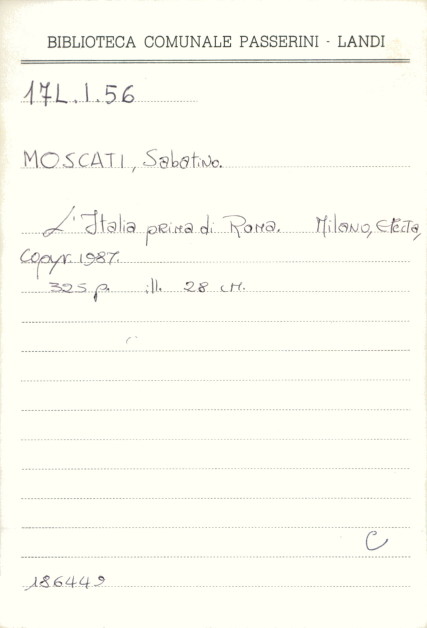 BIBLIOTECA COMUNALE PASSERINI - LANDI
17L.I.56
MOSCATI, Sabatino.
L'Italia prima di Roma. Milano, Electa,
Copyr. 1987.
325 p. ill. 28 cm.
C
186449